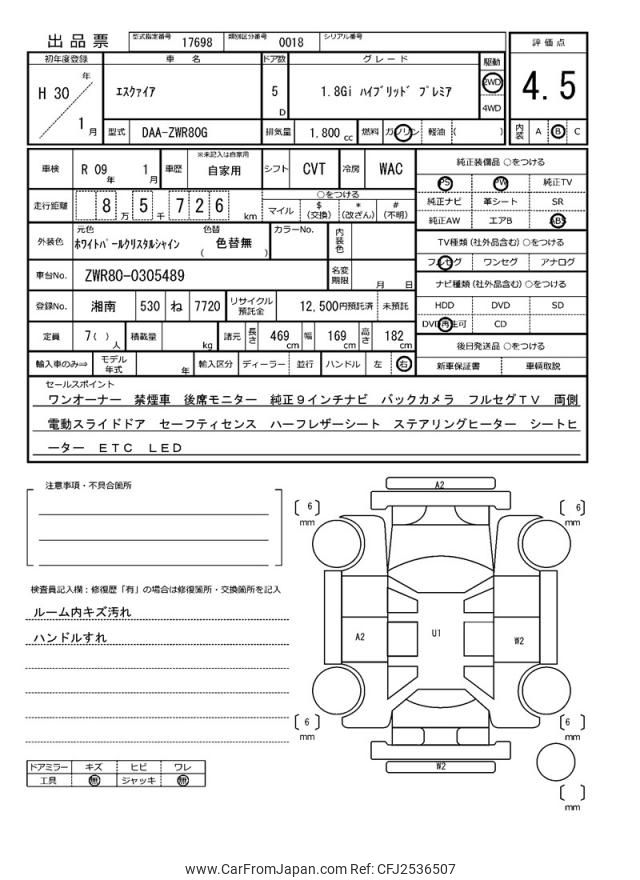 出品票 型式指定番号 17698 類別区分番号 0018 シリアル番号
初年度登録 車 名 ドア数 グレード 駆動 評価点
H 30 年 1 月 エスクァイア 5 D 1.8Gi ハイブリッド プレミア 2WD 4WD 4.5
型式 DAA-ZWR80G 排気量 1,800 cc 燃料 ガソリン 軽油 ( ) 内装 A B C
車検 R 09 年 1 月 車歴 ※未記入は自家用 自家用 シフト CVT 冷房 WAC 純正装備品 ○をつける
PS PW 純正TV
走行距離 8 万 5 千 7 2 6 km ○をつける マイル $ (交換) * (改ざん) # (不明) 純正ナビ 革シート SR
純正AW エアB ABS
外装色 元色 ホワイトパールクリスタルシャイン 色替 ( 色替無 ) カラーNo. 内装色 TV種類 (社外品含む) ○をつける
フルセグ ワンセグ アナログ
車台No. ZWR80-0305489 名変期限 月 日 ナビ種類 (社外品含む) ○をつける
登録No. 湘南 530 ね 7720 リサイクル預託金 12,500円預託済 未預託 HDD DVD SD
DVD再生可 CD
定員 7 ( ) 人 積載量 kg 諸元 長さ 469 cm 幅 169 cm 高さ 182 cm 後日発送品 ○をつける
輸入車のみ⇒ モデル年式 年 輸入区分 ディーラー 並行 ハンドル 左 右 新車保証書 車輌取説
セールスポイント
ワンオーナー 禁煙車 後席モニター 純正9インチナビ バックカメラ フルセグTV 両側
電動スライドドア セーフティセンス ハーフレザーシート ステアリングヒーター シートヒ
ーター ETC LED
注意事項・不具合箇所
検査員記入欄:修復歴「有」の場合は修復箇所・交換箇所を記入
ルーム内キズ汚れ
ハンドルすれ
ドアミラー キズ ヒビ ワレ
工具 無 ジャッキ 無
A2
[ 6 ] mm
[ 6 ] mm
A2 U1 W2
[ 6 ] mm
[ 6 ] mm
W2
[ ] mm
www.CarFromJapan.com Ref: CFJ2536507